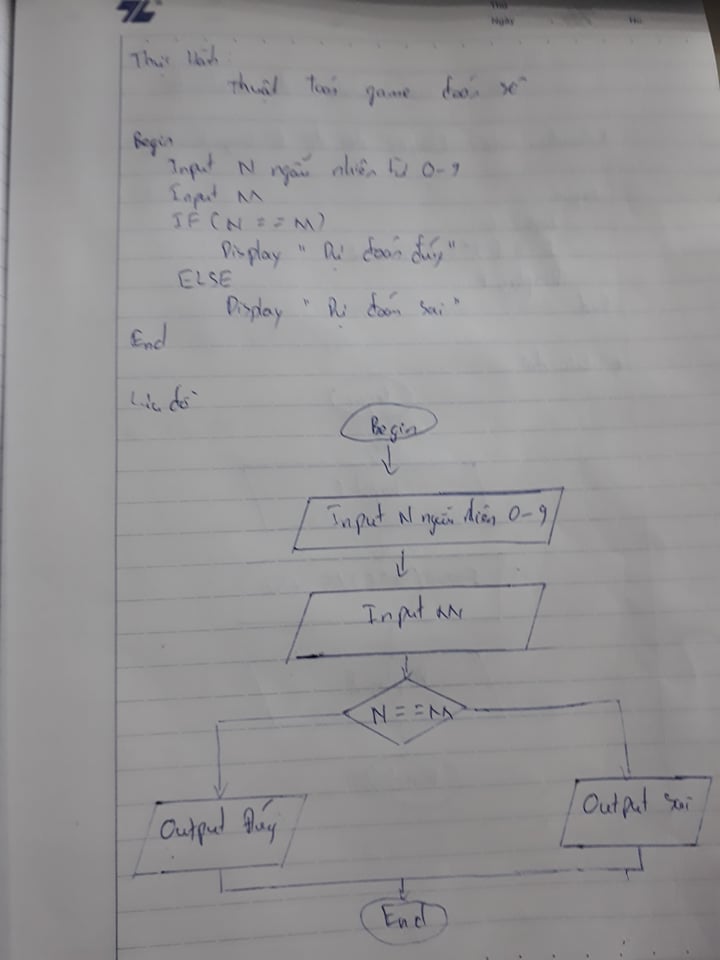 Thứ
Ngày
No
Thực Hành:
Thuật toán game đoán số
Begin
Input N ngẫu nhiên từ 0-9
Input M
IF (N == M)
Display "Dự đoán đúng"
ELSE
Display "Dự đoán sai"
End
Lưu đồ
Begin
Input N ngẫu nhiên 0-9
Input M
N == M
Output Đúng
Output Sai
End